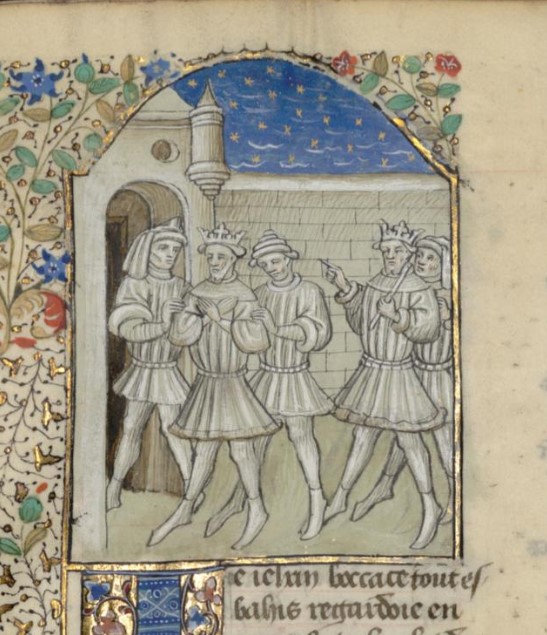 e iehan boccace tout es
bahis regardoie en